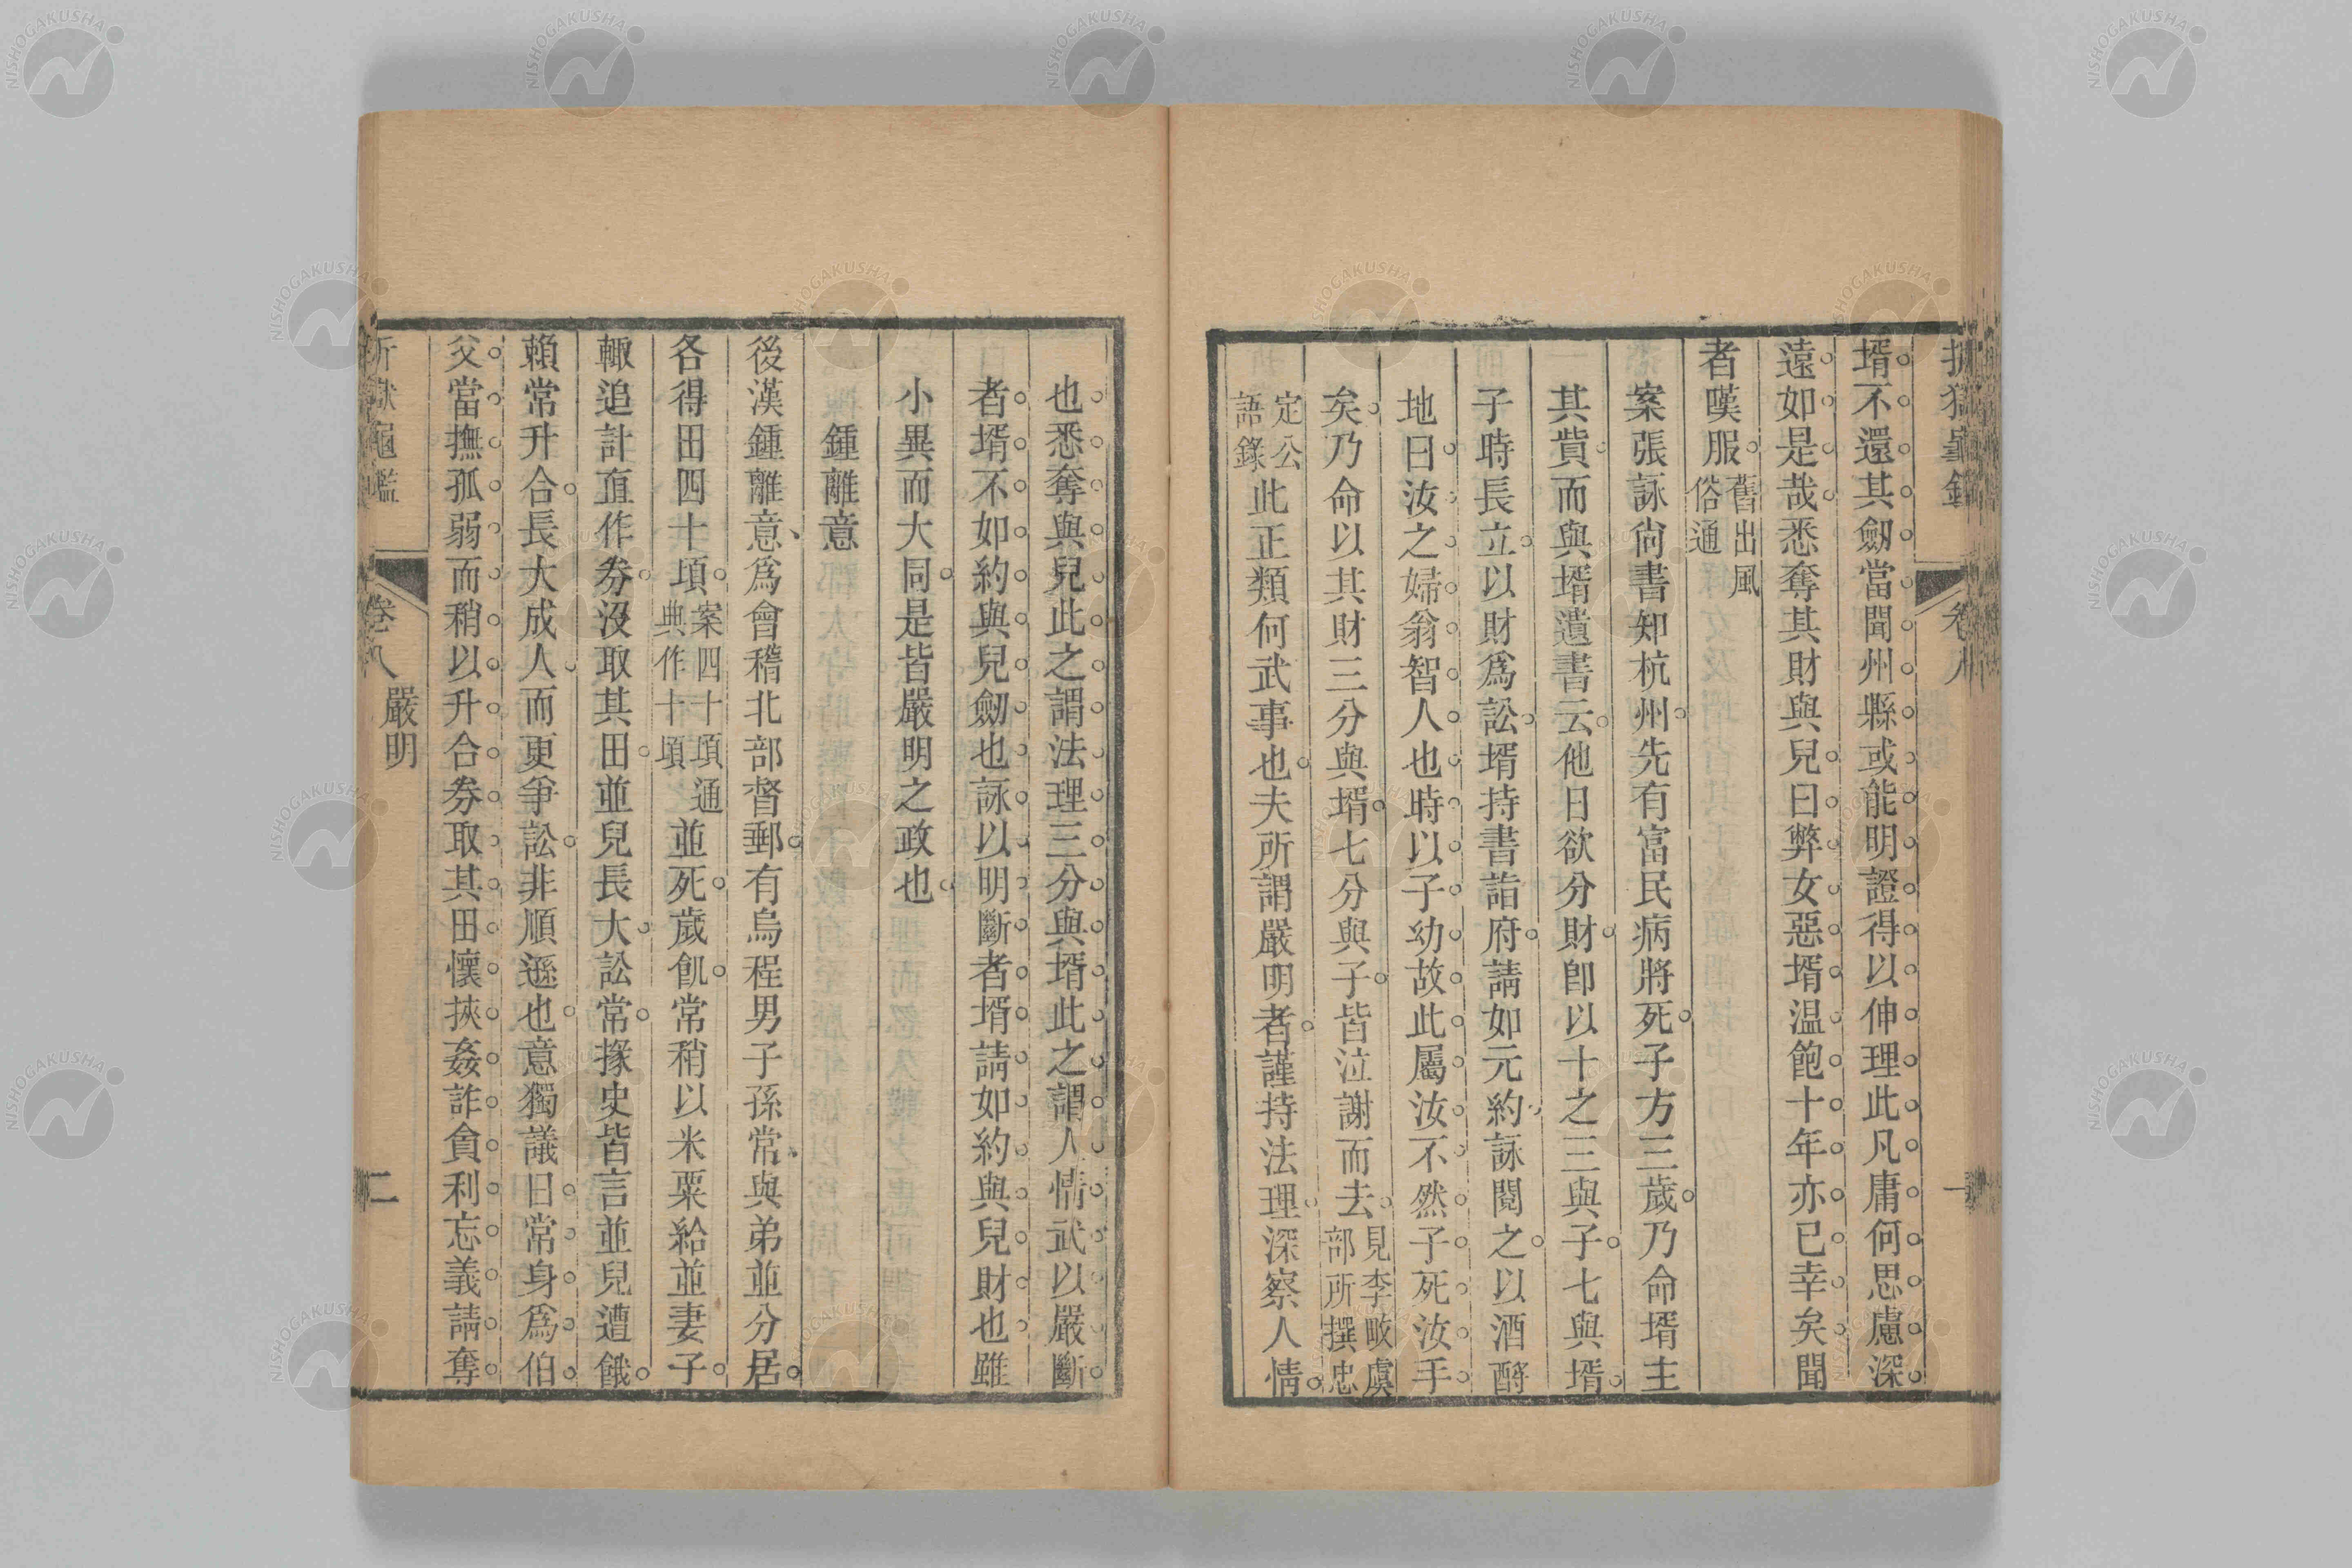 壻不還其劒當聞州縣或能明證得以伸理此凡庸何思慮深
遠如是哉悉奪其財與兒曰弊女惡壻温飽十年亦已幸矣聞
者嘆服舊出風俗通
案張詠尙書知杭州先有富民病將死子方三歲乃命壻主
其貲而與壻遺書云他日欲分財卽以十之三與子七與壻
子時長立以財爲訟壻持書詣府請如元約詠閱之以酒酹
地曰汝之婦翁智人也時以子幼故此屬汝不然子死汝手
矣乃命以其財三分與壻七分與子皆泣謝而去見李畋虞部所撰忠
定公語錄此正類何武事也夫所謂嚴明者謹持法理深察人情
也悉奪與兒此之謂法理三分與壻此之謂人情武以嚴斷
者壻不如約與兒劒也詠以明斷者壻請如約與兒財也雖
小異而大同是皆嚴明之政也
鍾離意
後漢鍾離意爲會稽北部督郵有烏程男子孫常與弟並分居
各得田四十頃案四十頃通典作十頃並死歲飢常稍以米粟給並妻子
輙追計直作券沒取其田並兒長大訟常掾史皆言並兒遭餓
賴常升合長大成人而更爭訟非順遜也意獨議曰常身爲伯
父當撫孤弱而稍以升合券取其田懷挾姦詐貪利忘義請奪
折獄龜鑑 卷八 嚴明 二
NISHOGAKUSHA